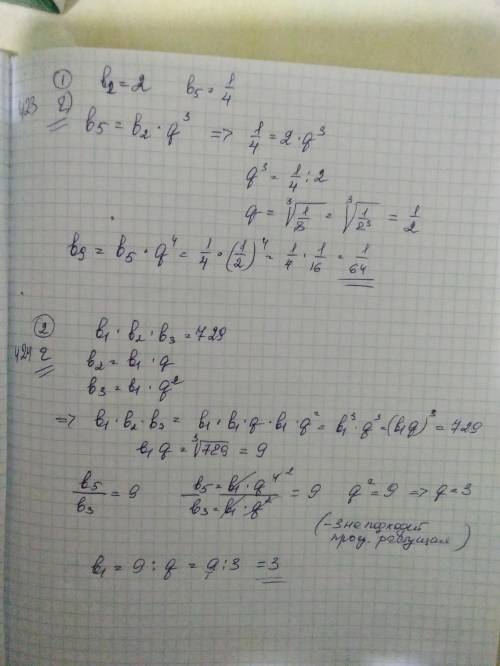 ① b₂=2 b₅=1/4
423 г) b₅=b₂·q³ => 1/4=2·q³
q³=1/4:2
q=∛(1/8)=∛(1/2³)=1/2
b₉=b₅·q⁴=1/4·(1/2)⁴=1/4·1/16=1/64
②
424 г b₁·b₂·b₃=729
b₂=b₁·q
b₃=b₁·q²
=> b₁·b₂·b₃=b₁·b₁·q·b₁·q²=b₁³·q³=(b₁q)³=729
b₁q=∛789=9
b₅/b₃=9 b₅=b₁·q⁴/b₃=b₁·q²=9 q²=9 => q=3
(-3 не подходит
прог. растущая)
b₁=9:q=9:3=3